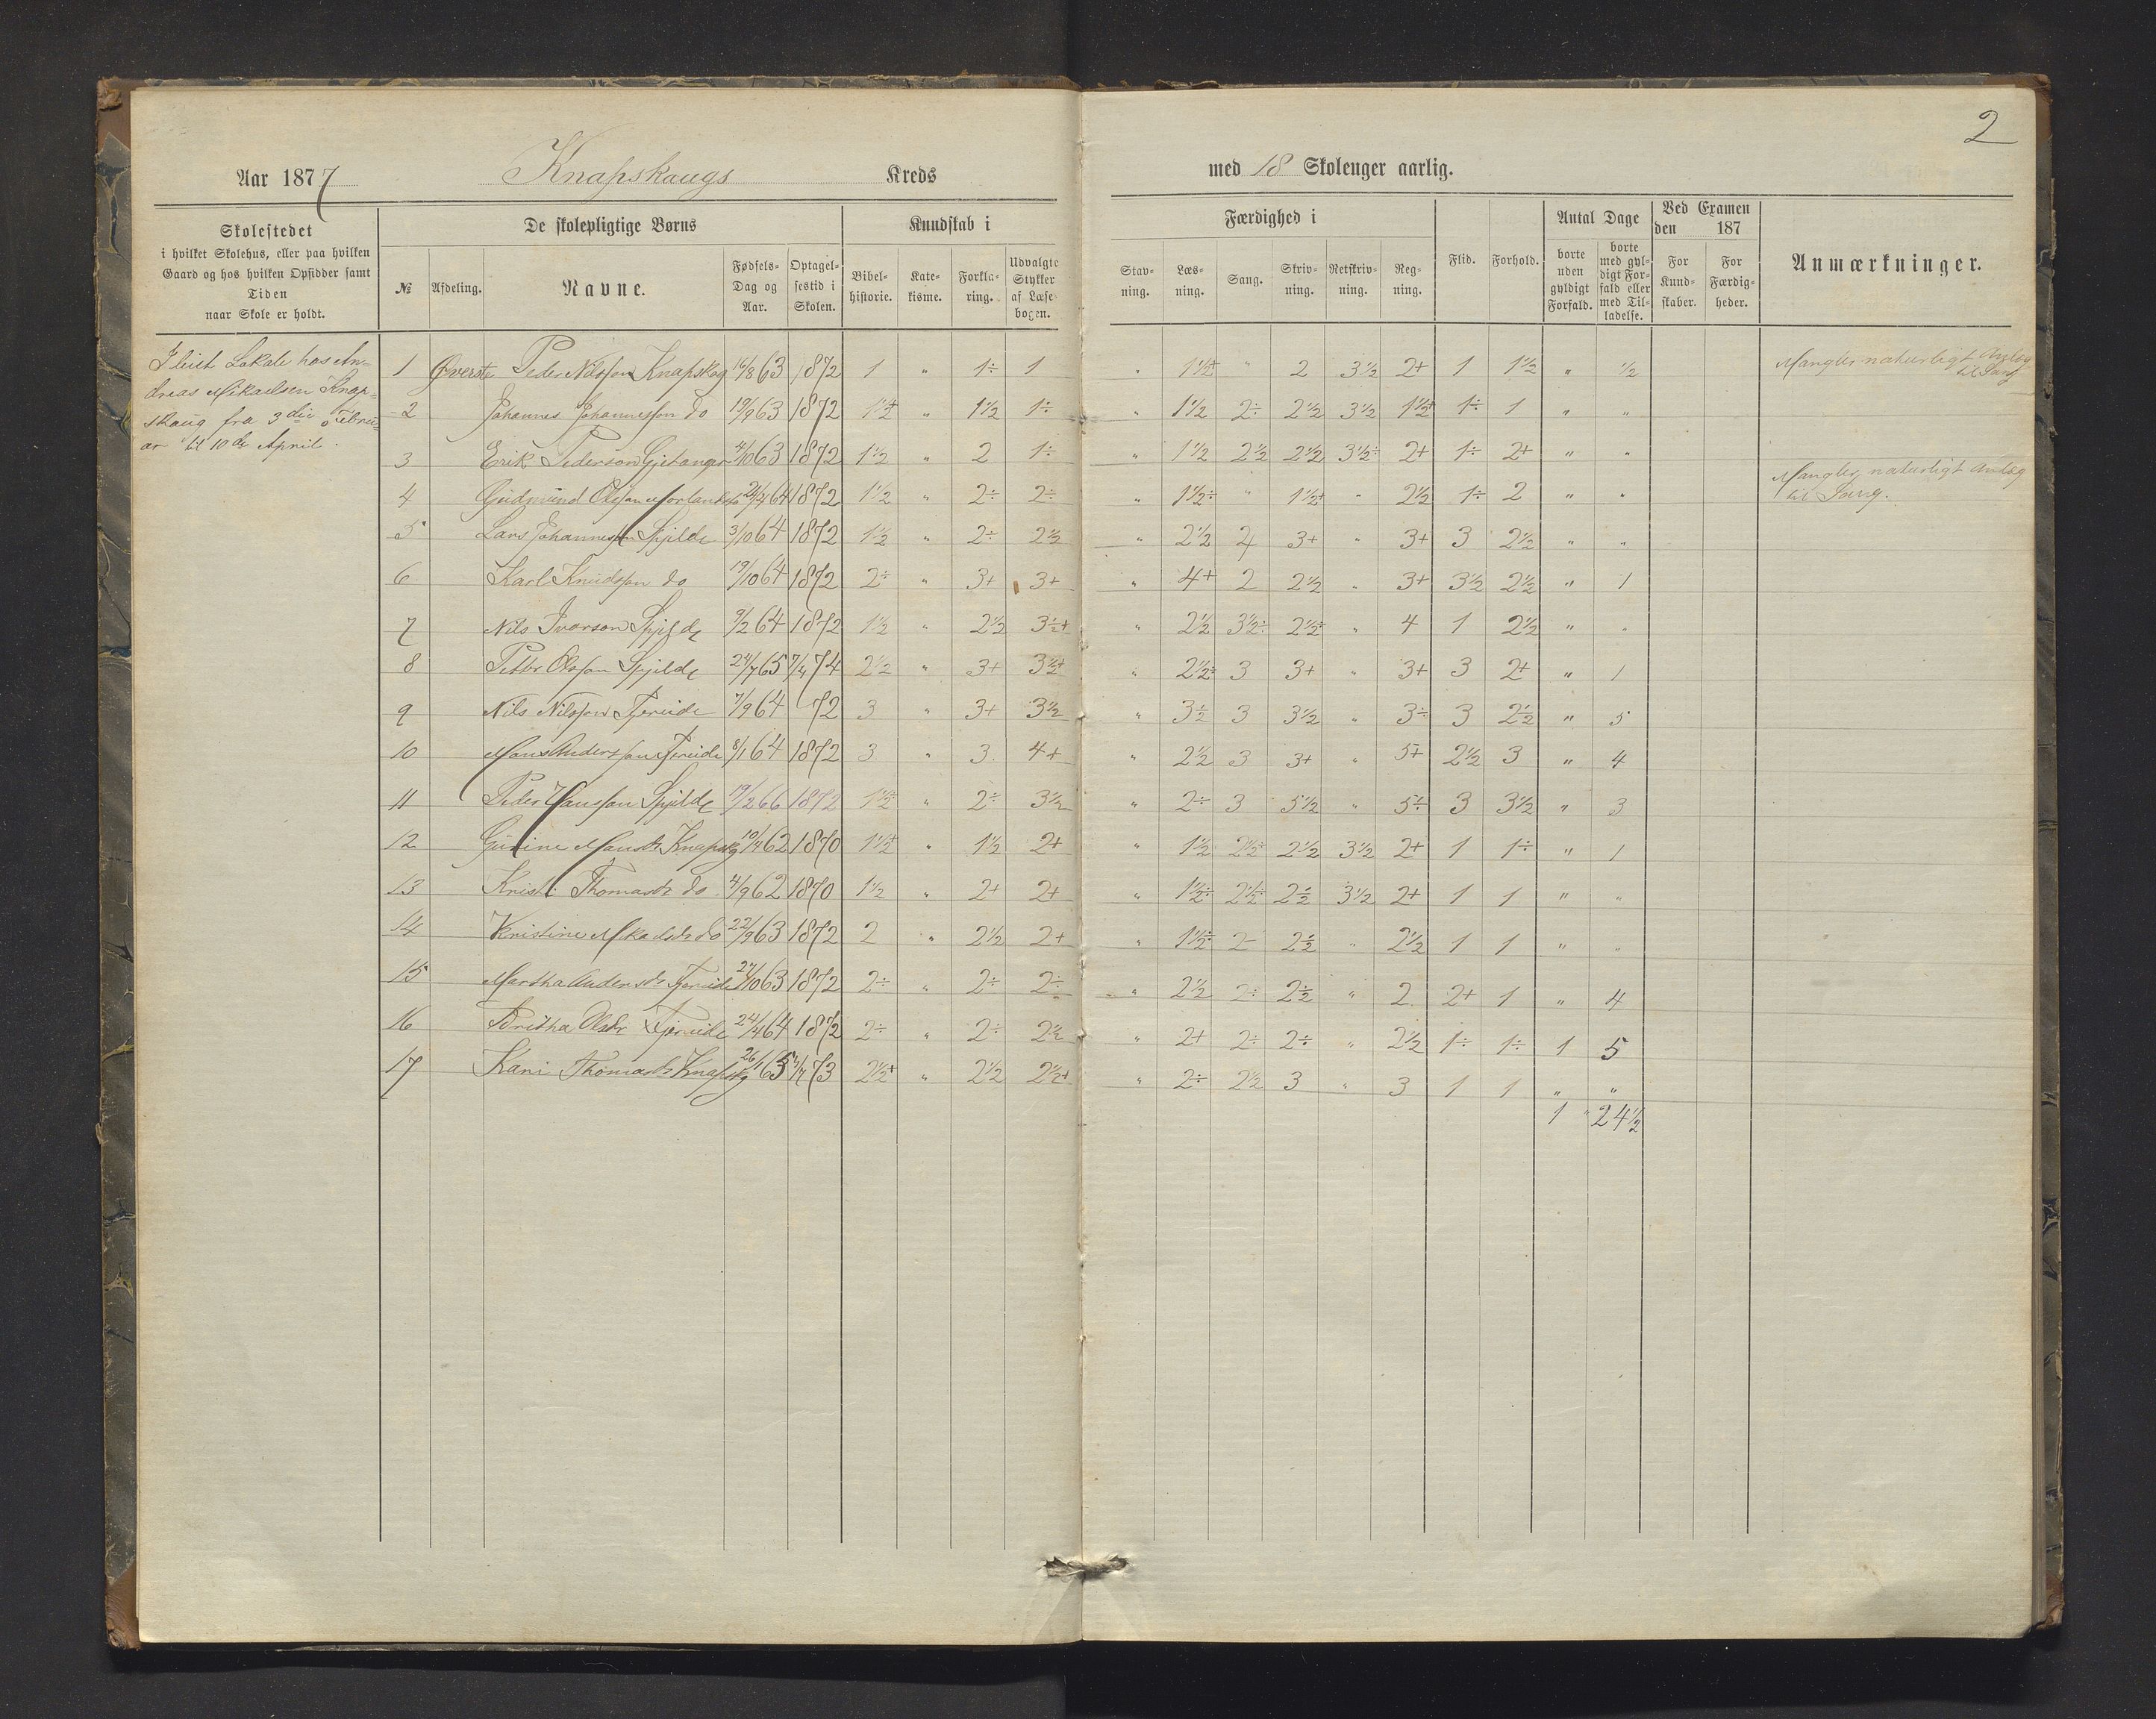 2
Aar 1877 Knapskaugs Kreds med 18 Skoleuger aarlig.
Skolestedet
i hvilket Skolehus, eller paa hvilken
Gaard og hos hvilken Opsidder samt
Tiden
naar Skole er holdt.
De skolepligtige Børns
№ Afdeling. Navne. Fødsels-Dag og Aar. Optagel-sestid i Skolen.
Kundskab i
Bibel-historie. Kate-kisme. Forkla-ring. Udvalgte Stykker af Læse-bogen.
Færdighed i
Stav-ning. Læs-ning. Sang. Skriv-ning. Retskriv-ning. Reg-ning.
Flid. Forhold.
Antal Dage
borte uden gyldigt Forfald. borte med gyl-digt For-fald eller med Til-ladelse.
Ved Examen den 187
For Kund-skaber. For Færdig-heder.
Anmærkninger.
I leiet Lokale hos An-
dreas Mikaelsen Knap-
skaug fra 3die Febru-
ar til 10de April.
1 Øverste Peder Nilsson Knapskog 16/8 63 1872 1 " 1÷ 1 " 1½+ " 2 3½ 2+ 1 1½ " ½ Mangler naturligt Anlæg til Sang
2 Johannes Johannesson do 19/9 63 1872 1½+ " 1½ 1÷ " 1½ 2÷ 2½ 3½ 1½+ 1÷ 1 " "
3 Erik Pederson Gjetanger 4/10 63 1872 1½ " 2 1÷ " 1½ 2½ 2½ 3½÷ 2+ 1÷ 2+ " "
4 Gudmund Olsson Morland 24/4 64 1872 1½ " 2÷ 2÷ " 1½÷ " 1½+ " 2½ 1÷ 2 " " Mangler naturligt Anlæg til Sang.
5 Lars Johannesson Spjilde 3/10 64 1872 1½ " 2÷ 2½ " 2½ 4 3+ " 3+ 3 2½ " "
6 Karl Knudsson do 19/10 64 1872 2÷ " 3+ 3+ " 4+ 2 2½ " 3+ 3½ 2½ " 1
7 Nils Ivarson Spjilde 9/2 64 1872 1½ " 2½ 3½+ " 2½ 3½÷ 2½+ " 4 1 2½ " "
8 Petter Olsson Spjilde 24/7 65 7/4 74 2½ " 3+ 3½+ " 2½÷ 3 3+ " 3+ 3 2+ " 1
9 Nils Nilsson Fjereide 7/9 64 72 3 " 3+ 3½ " 3½ 3 3½ " 3÷ 3 2½ " 5
10 Mons Andersson Fjereide 8/1 64 1872 3 " 3. 4+ " 2½ 3 3+ " 5+ 2½ 3 " 4
11 Peder Hansson Spjilde 19/2 66 1872 1½+ " 2÷ 3½ " 2÷ 3 5½ " 5÷ 3 3½ " 3
12 Gurine Monsdr Knapskg 10/4 62 1870 1½+ " 1½ 2+ " 1½ 2½+ 2½ 3½ 2+ 1 1÷ " 1
13 Kristi Thomasdr do 4/9 62 1870 1½ " 2+ 2+ " 1½÷ 2½÷ 2½ 3½ 2+ 1 1 " "
14 Kristine Mikaelsdr do 22/9 63 1872 2 " 2½ 2+ " 1½÷ 2 2½ " 2½ 1 1 " "
15 Martha Andersdr Fjereide 27/10 63 1872 2÷ " 2÷ 2÷ " 2½ 2÷ 2½ " 2 2+ 1 " 4
16 Britha Olsdr Fjereide 24/4 64 1872 2÷ " 2÷ 2½ " 2+ 2÷ 2÷ " 2½ 1÷ 1÷ 1 5
17 Kari Thomasdr Knapskg 26/1 65 73 2½+ " 2½ 2½+ " 2÷ 2½ 3 " 3 1 1 " "
1 " 24½